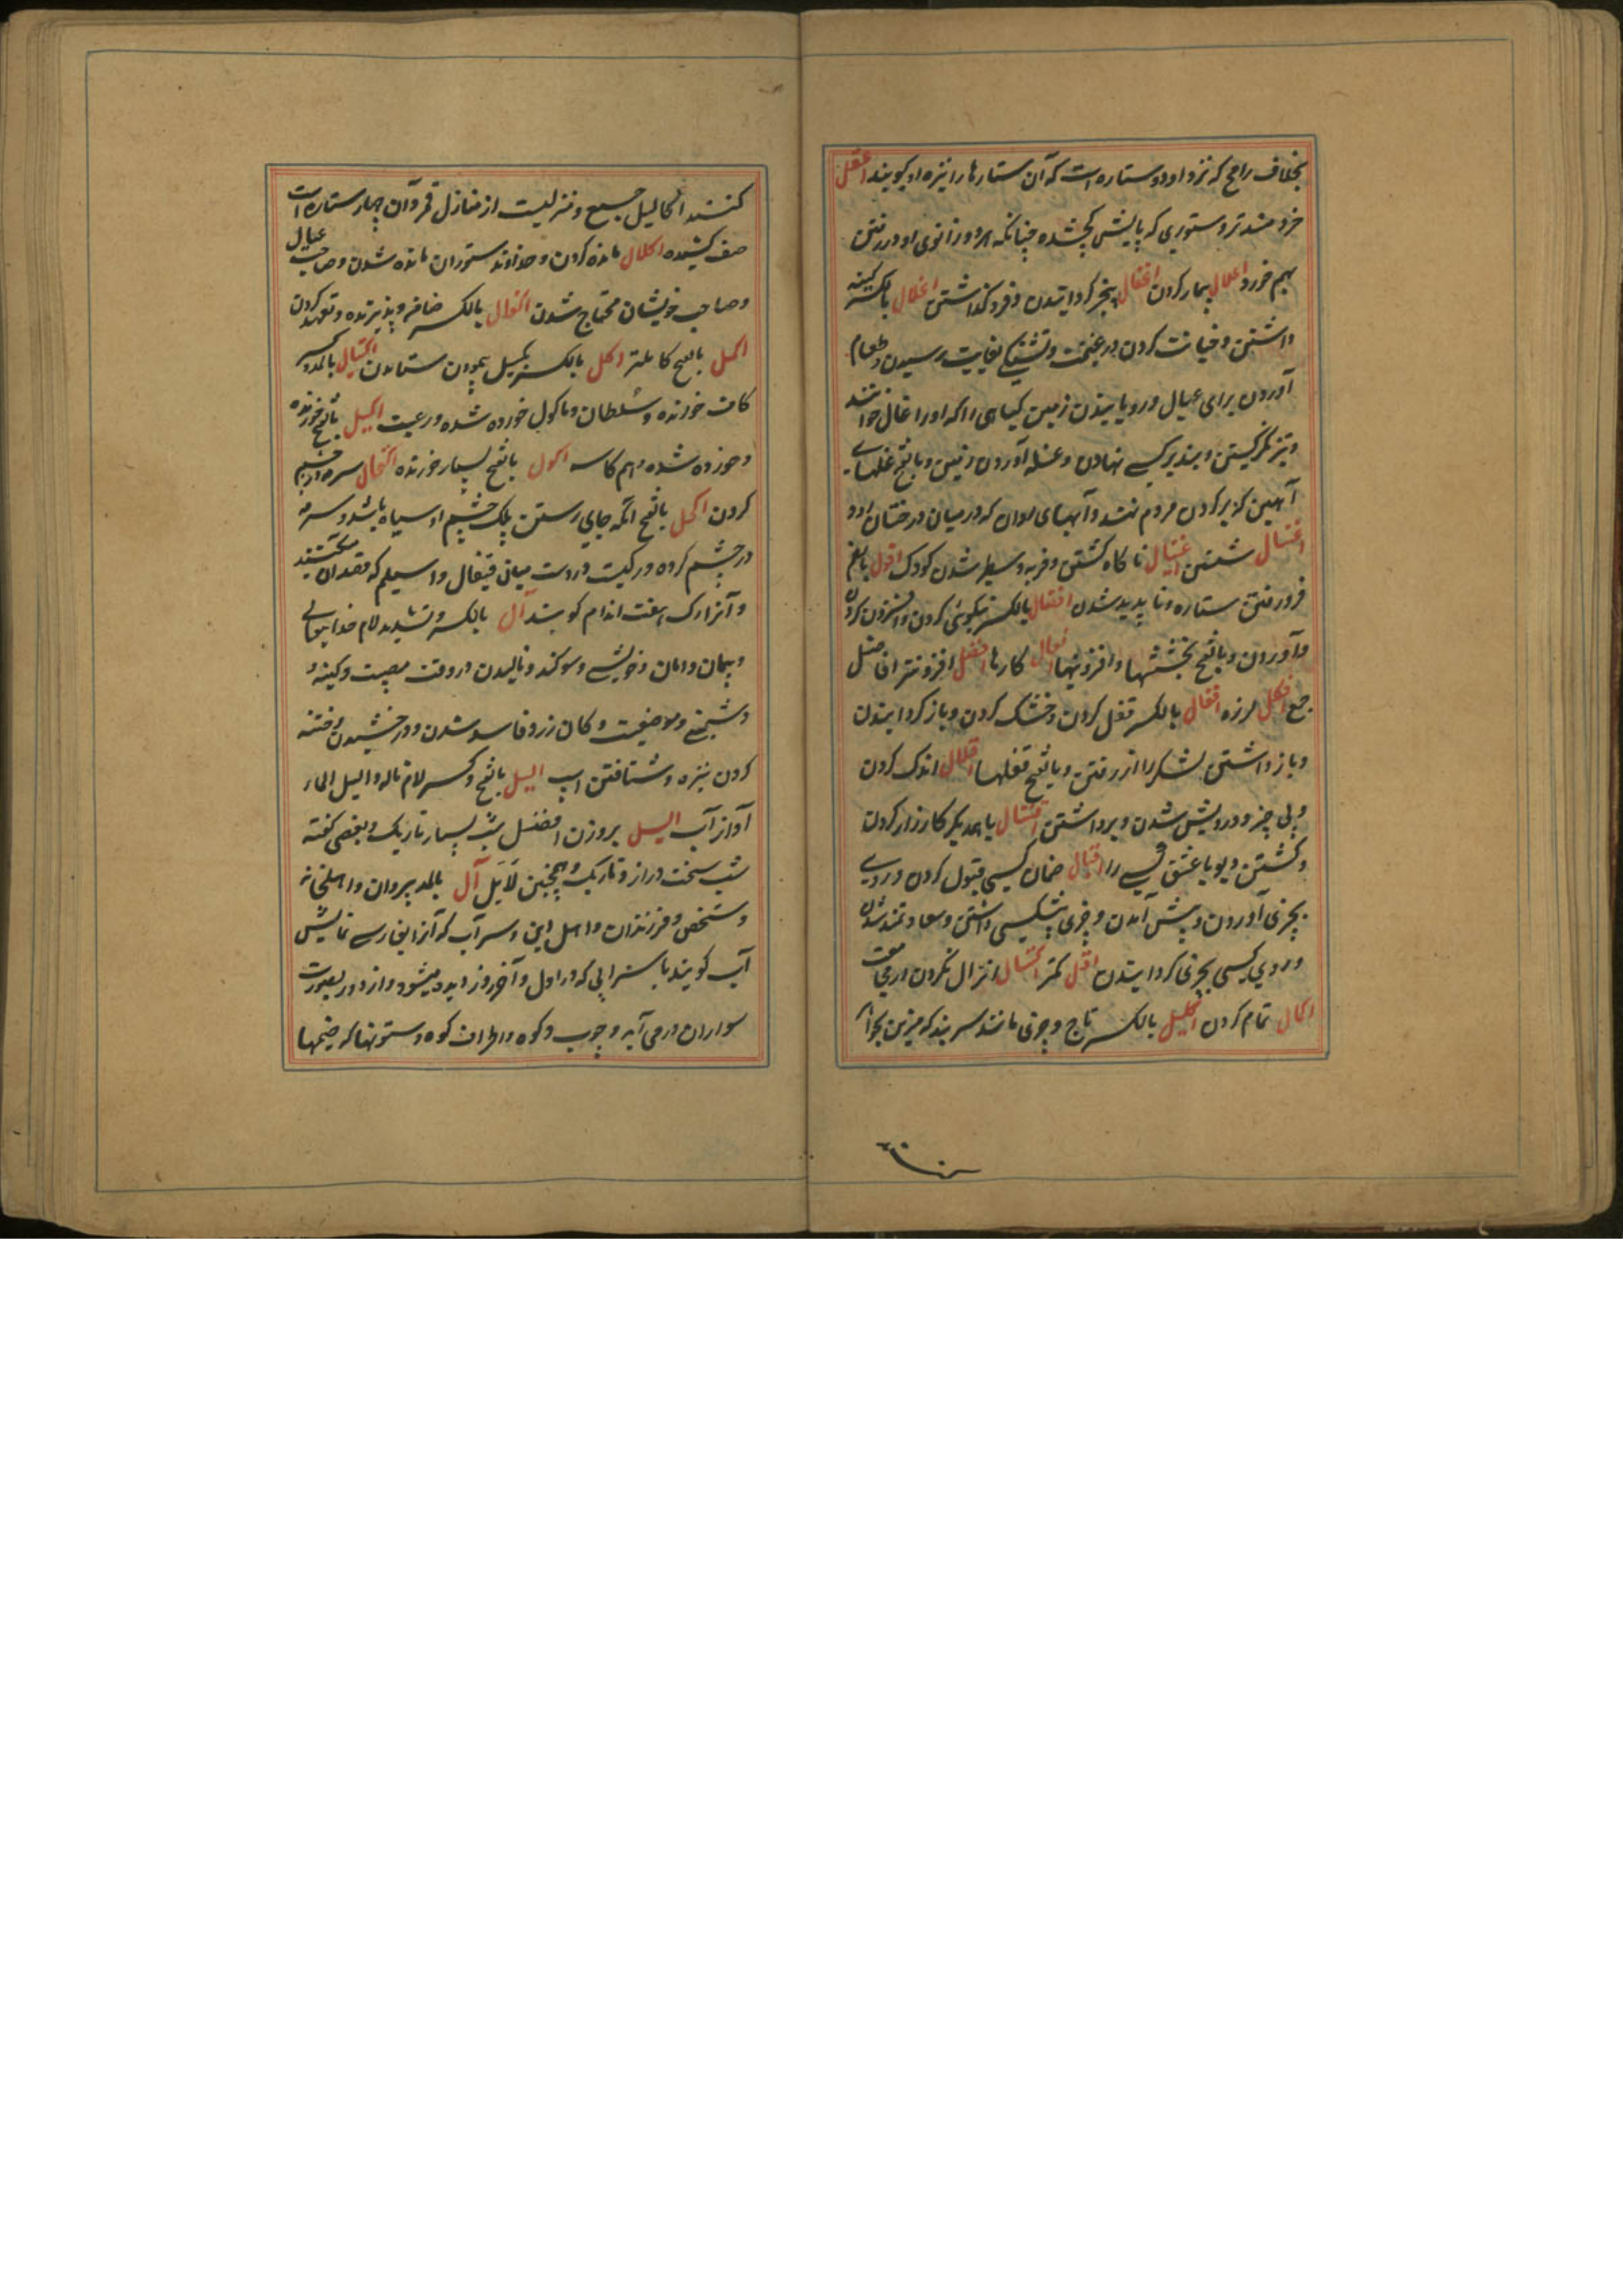 بخلاف رامح که نزد او دو ستاره است که آن ستارها را نیزه او گویند اعقل
خردمندتر و ستوری که پایش کج شده چنانکه هر دو زانوی او در رفتن
بهم خورد اعلال بیمار کردن اغفال بیخبر گردانیدن و فرو گذاشتن اغلال بالکسر کینه
داشتن و خیانت کردن در غنیمت و تشنگی بغایت رسیدن و طعام
آوردن برای عیال و رویانیدن زمین گیاهی را که او را غال خوانند
و تیز نگریستن و بند بر کسی نهادن و غله آوردن زمین و بالفتح غلهای
آهنین که بر گردن مردم نهند و آبهای روان که در میان درختان رود
اغتسال شستن اغتیال ناگاه کشتن و فربه و سطبر شدن کودک افول بالضم
فرو رفتن ستاره و ناپدید شدن افضال بالکسر نیکویی کردن و افزون کردن
و آوردن و بالفتح بخششها و افزونیها افعال کارها افضل افزونتر افاضل
جمع افکل لرزه اقفال بالکسر قفل کردن و خشک کردن و باز گردانیدن
و باز داشتن لشکر را از رفتن و بالفتح قفلها اقلال اندک کردن
و بی چیز و درویش شدن و برداشتن اقتتال با همدیگر کارزار کردن
و کشتن دیو یا عشق کسی را اقبال ضمان کسی قبول کردن و روی
بچیزی آوردن و پیش آمدن و چیزی پیش کسی داشتن و سعادتمند شدن
و روی کسی بچیزی گردانیدن اقل کمتر اکسال انزال نکردن در مجامعت
اکمال تمام کردن اکلیل بالکسر تاج و چیزی مانند سربند که مزین بجواهر
کنند اکالیل جمع و منزلیست از منازل قمر و آن چهار ستاره است
صف کشیده اکلال مانده کردن و خداوند ستوران مانده شدن و صاحب عیال
و صاحب خویشان محتاج شدن اکفال بالکسر ضامن و پذیرنده و تعهد کردن
اکمل بالفتح کاملتر اکل بالکسر اکتیال بالمد و کسر
کاف خورنده و سلطان و ماکول خورده شده و رعیت اکیل بالفتح خورنده
و خورده شده و هم کاسه اکول بالفتح بسیار خورنده اکتحال سرمه در چشم
کردن اکحل بالفتح آنکه جای رستن پلک چشم او سیاه باشد و سرمه
در چشم کرده و رگیست در دست میان قیفال و اسیلم که فصد آن میکنند
و آنرا رگ هفت اندام گویند ال بالکسر و تشدید لام خدایتعالی
و پیمان و امان و خویشی و سوگند و نالیدن در وقت مصیبت و کینه و
دشمنی و موضعیست و کان زر و فاسد شدن و درخشیدن و فتنه
کردن نیزه و شتافتن اسپ الیل بالفتح و کسر لام ناله و الیل الماء
آواز آب الیل بروزن افضل شب بسیار تاریک و بعضی گفته
شب سخت دراز و تاریک و همچنین لایل آل بالمد پیروان و اهلخانه
و شخص و فرزندان و اهل دین و سراب که آنرا بفارسی نمایش
آب گویند یا سرابی که در اول و آخر روز دیده میشود و از دور بصورت
سواران در می آید و چوب و کوه و اطراف کوه و ستونها که خیمها